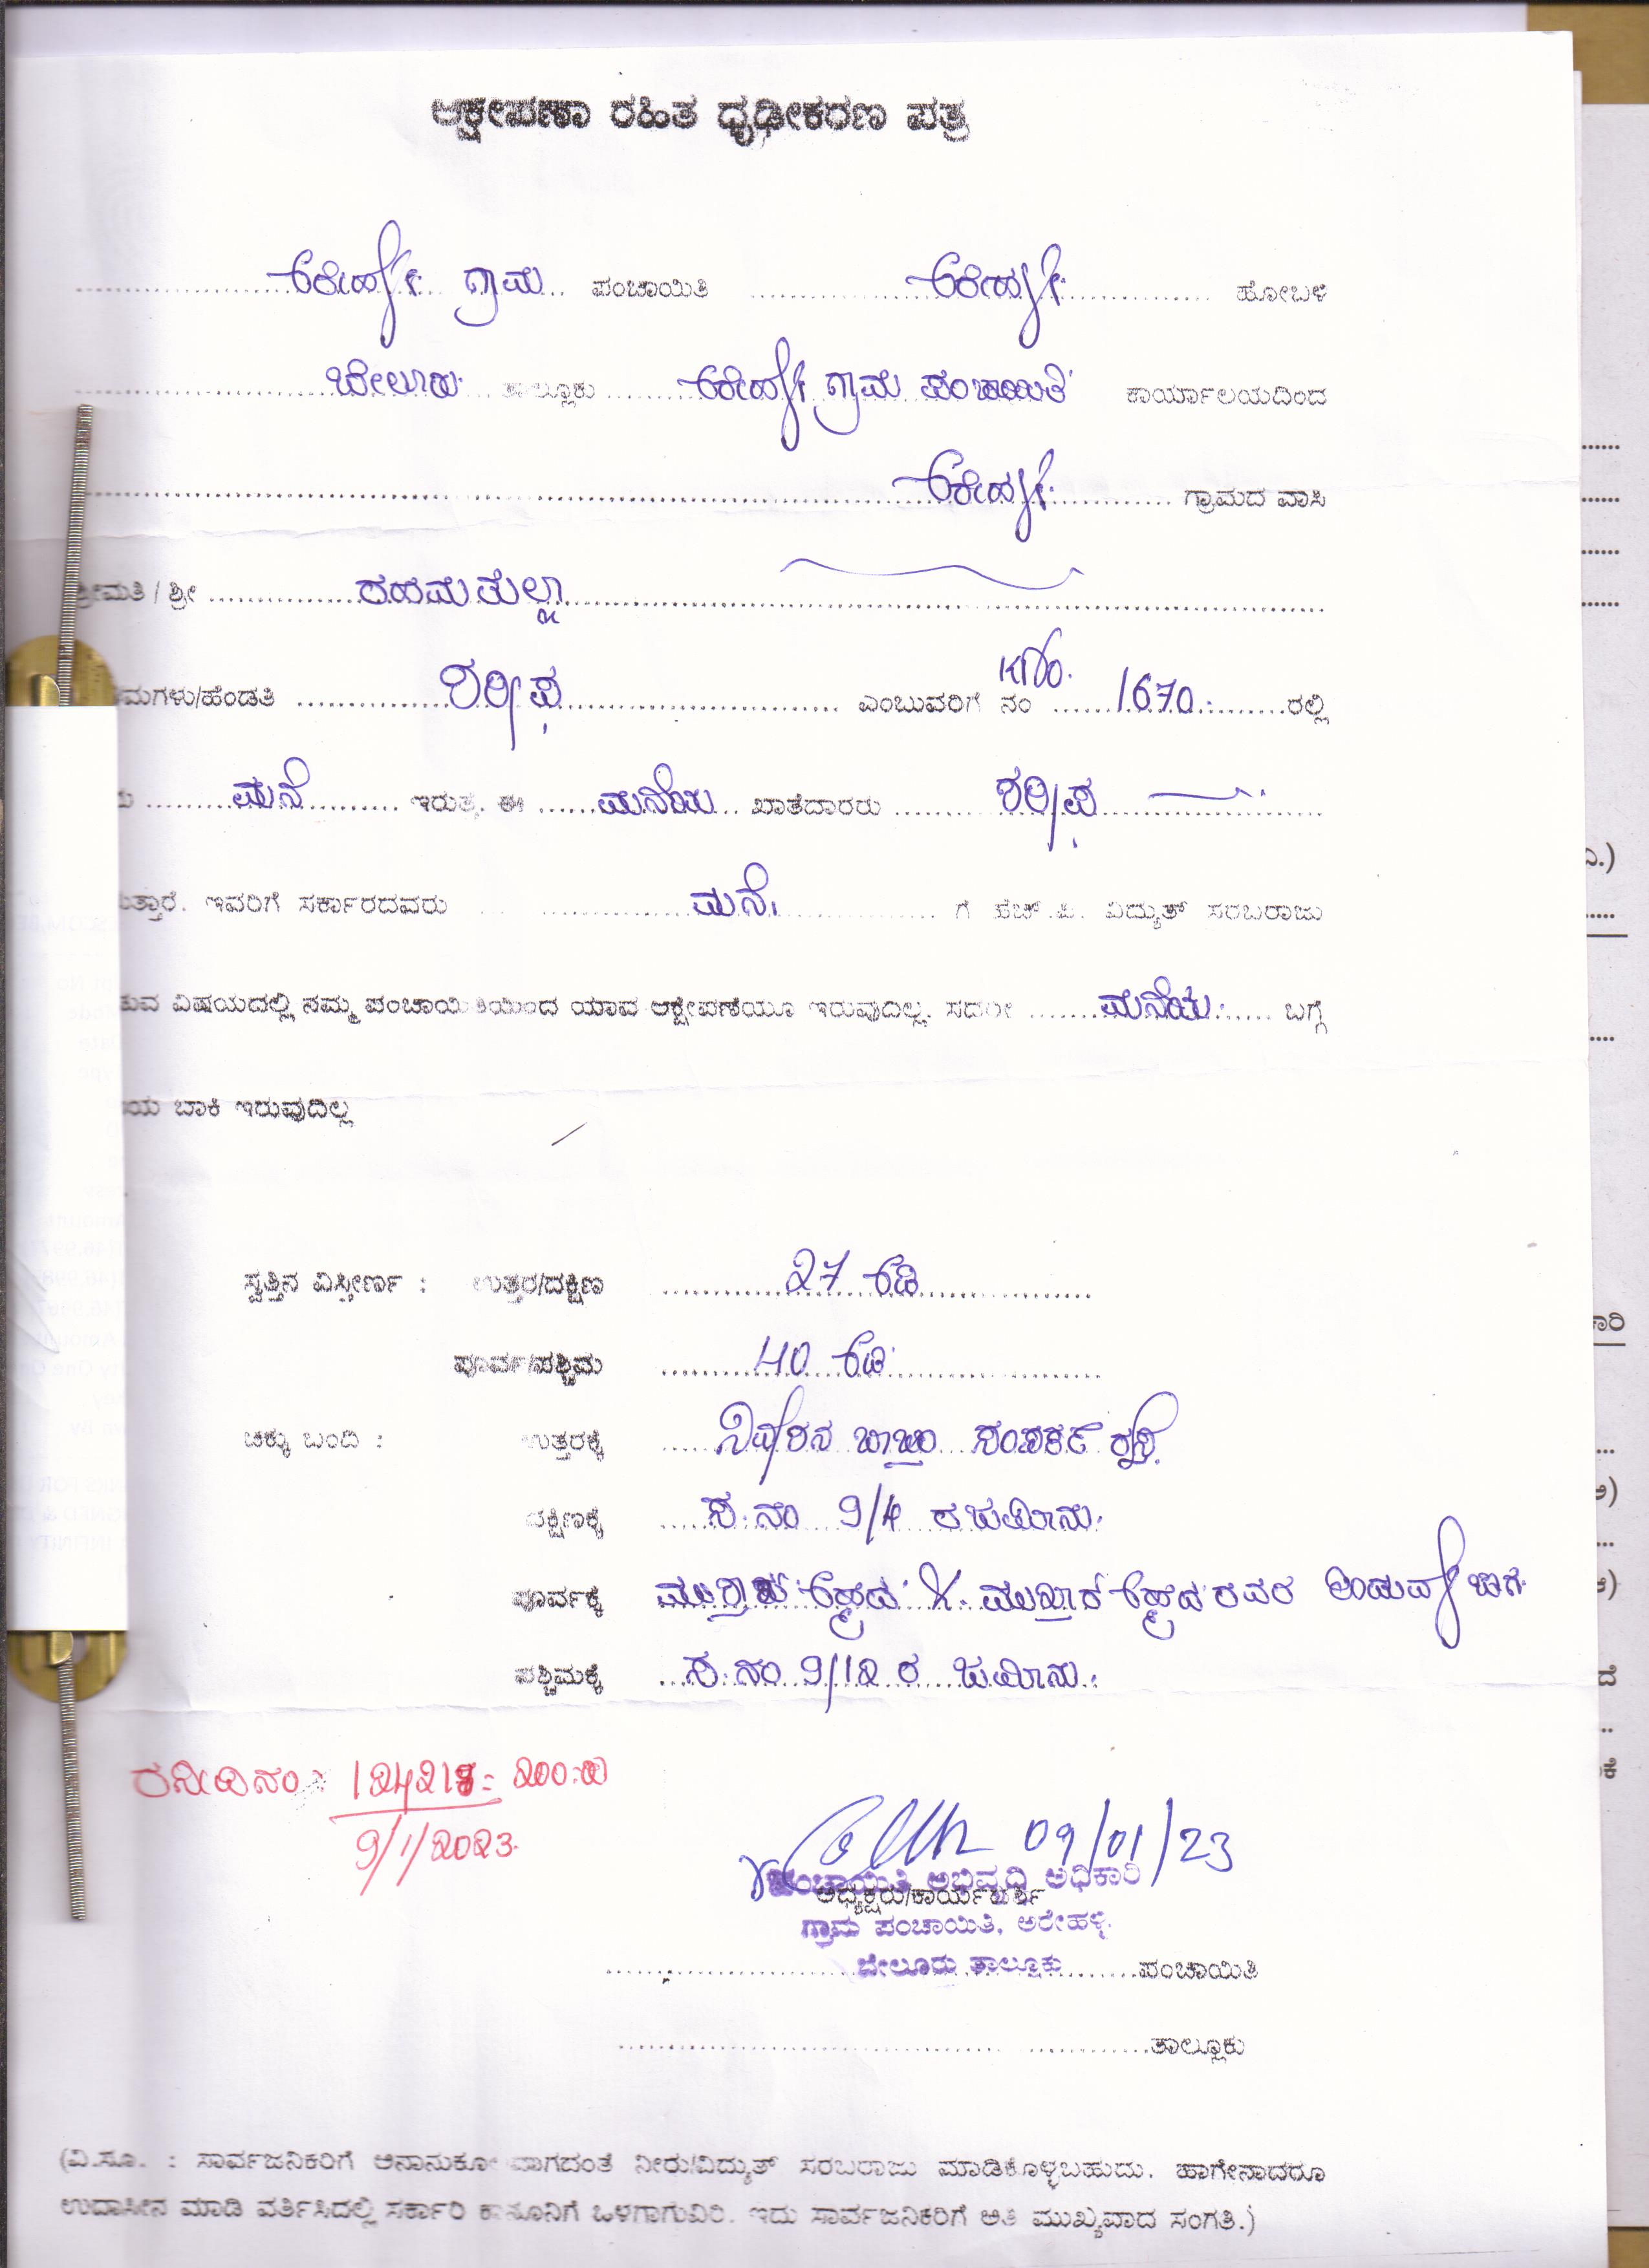 ಆಕ್ಷೇಪಣಾ ರಹಿತ ಧೃಢೀಕರಣ ಪತ್ರ
ಅರೇಹಳ್ಳಿ ಗ್ರಾಮ ಪಂಚಾಯಿತಿ ಅರೇಹಳ್ಳಿ ಹೋಬಳಿ
ಬೇಲೂರು ತಾಲ್ಲೂಕು ಅರೇಹಳ್ಳಿ ಗ್ರಾಮ ಪಂಚಾಯಿತಿ ಕಾರ್ಯಾಲಯದಿಂದ
ಅರೇಹಳ್ಳಿ ಗ್ರಾಮದ ವಾಸಿ
ಶ್ರೀಮತಿ / ಶ್ರೀ ರಹಮತುಲ್ಲಾ
ಮಗಳು/ಹೆಂಡತಿ ಶರೀಫ ಎಂಬುವರಿಗೆ ನಂ 1670 ರಲ್ಲಿ
ಮನೆ ಇರುತ್ತೆ. ಈ ಮನೆಯ ಖಾತೆದಾರರು ಶರೀಫ
ಇವರಿಗೆ ಸರ್ಕಾರದವರು ಮನೆ ಗೆ ಹೆಚ್.ಪಿ. ವಿದ್ಯುತ್ ಸರಬರಾಜು
ವಿಷಯದಲ್ಲಿ ನಮ್ಮ ಪಂಚಾಯಿತಿಯಿಂದ ಯಾವ ಆಕ್ಷೇಪಣೆಯೂ ಇರುವುದಿಲ್ಲ. ಸದರೀ ಮನೆಯ ಬಗ್ಗೆ
ಬಾಕಿ ಇರುವುದಿಲ್ಲ
ಸ್ವತ್ತಿನ ವಿಸ್ತೀರ್ಣ : ಉತ್ತರ/ದಕ್ಷಿಣ 27 ಅಡಿ
ಪೂರ್ವ/ಪಶ್ಚಿಮ 40 ಅಡಿ
ಚಕ್ಕು ಬಂದಿ : ಉತ್ತರಕ್ಕೆ ನಿವೇಶನ ಬಾಬ್ತು ಸಂಪರ್ಕ ರಸ್ತೆ
ದಕ್ಷಿಣಕ್ಕೆ ಸ.ನಂ 9/4 ರ ಜಮೀನು.
ಪೂರ್ವಕ್ಕೆ ಅಹ್ಮದ್ & ಮುಖ್ತಾರ್ ಅಹ್ಮದ್ ರವರ
ಪಶ್ಚಿಮಕ್ಕೆ ಸ.ನಂ 9/12 ರ ಜಮೀನು.
ರಸೀದಿ ನಂ: 200=00
9/1/2023
09/01/23
ಪಂಚಾಯಿತಿ ಅಭಿವೃದ್ಧಿ ಅಧಿಕಾರಿ
ಅಧ್ಯಕ್ಷರು/ಕಾರ್ಯದರ್ಶಿ
ಗ್ರಾಮ ಪಂಚಾಯಿತಿ, ಅರೇಹಳ್ಳಿ.
ಬೇಲೂರು ತಾಲ್ಲೂಕು ಪಂಚಾಯಿತಿ
ತಾಲ್ಲೂಕು
(ವಿ.ಸೂ. : ಸಾರ್ವಜನಿಕರಿಗೆ ಅನಾನುಕೂಲವಾಗದಂತೆ ನೀರು/ವಿದ್ಯುತ್ ಸರಬರಾಜು ಮಾಡಿಕೊಳ್ಳಬಹುದು. ಹಾಗೇನಾದರೂ
ಉದಾಸೀನ ಮಾಡಿ ವರ್ತಿಸಿದಲ್ಲಿ ಸರ್ಕಾರಿ ಕಾನೂನಿಗೆ ಒಳಗಾಗುವಿರಿ. ಇದು ಸಾರ್ವಜನಿಕರಿಗೆ ಅತಿ ಮುಖ್ಯವಾದ ಸಂಗತಿ.)